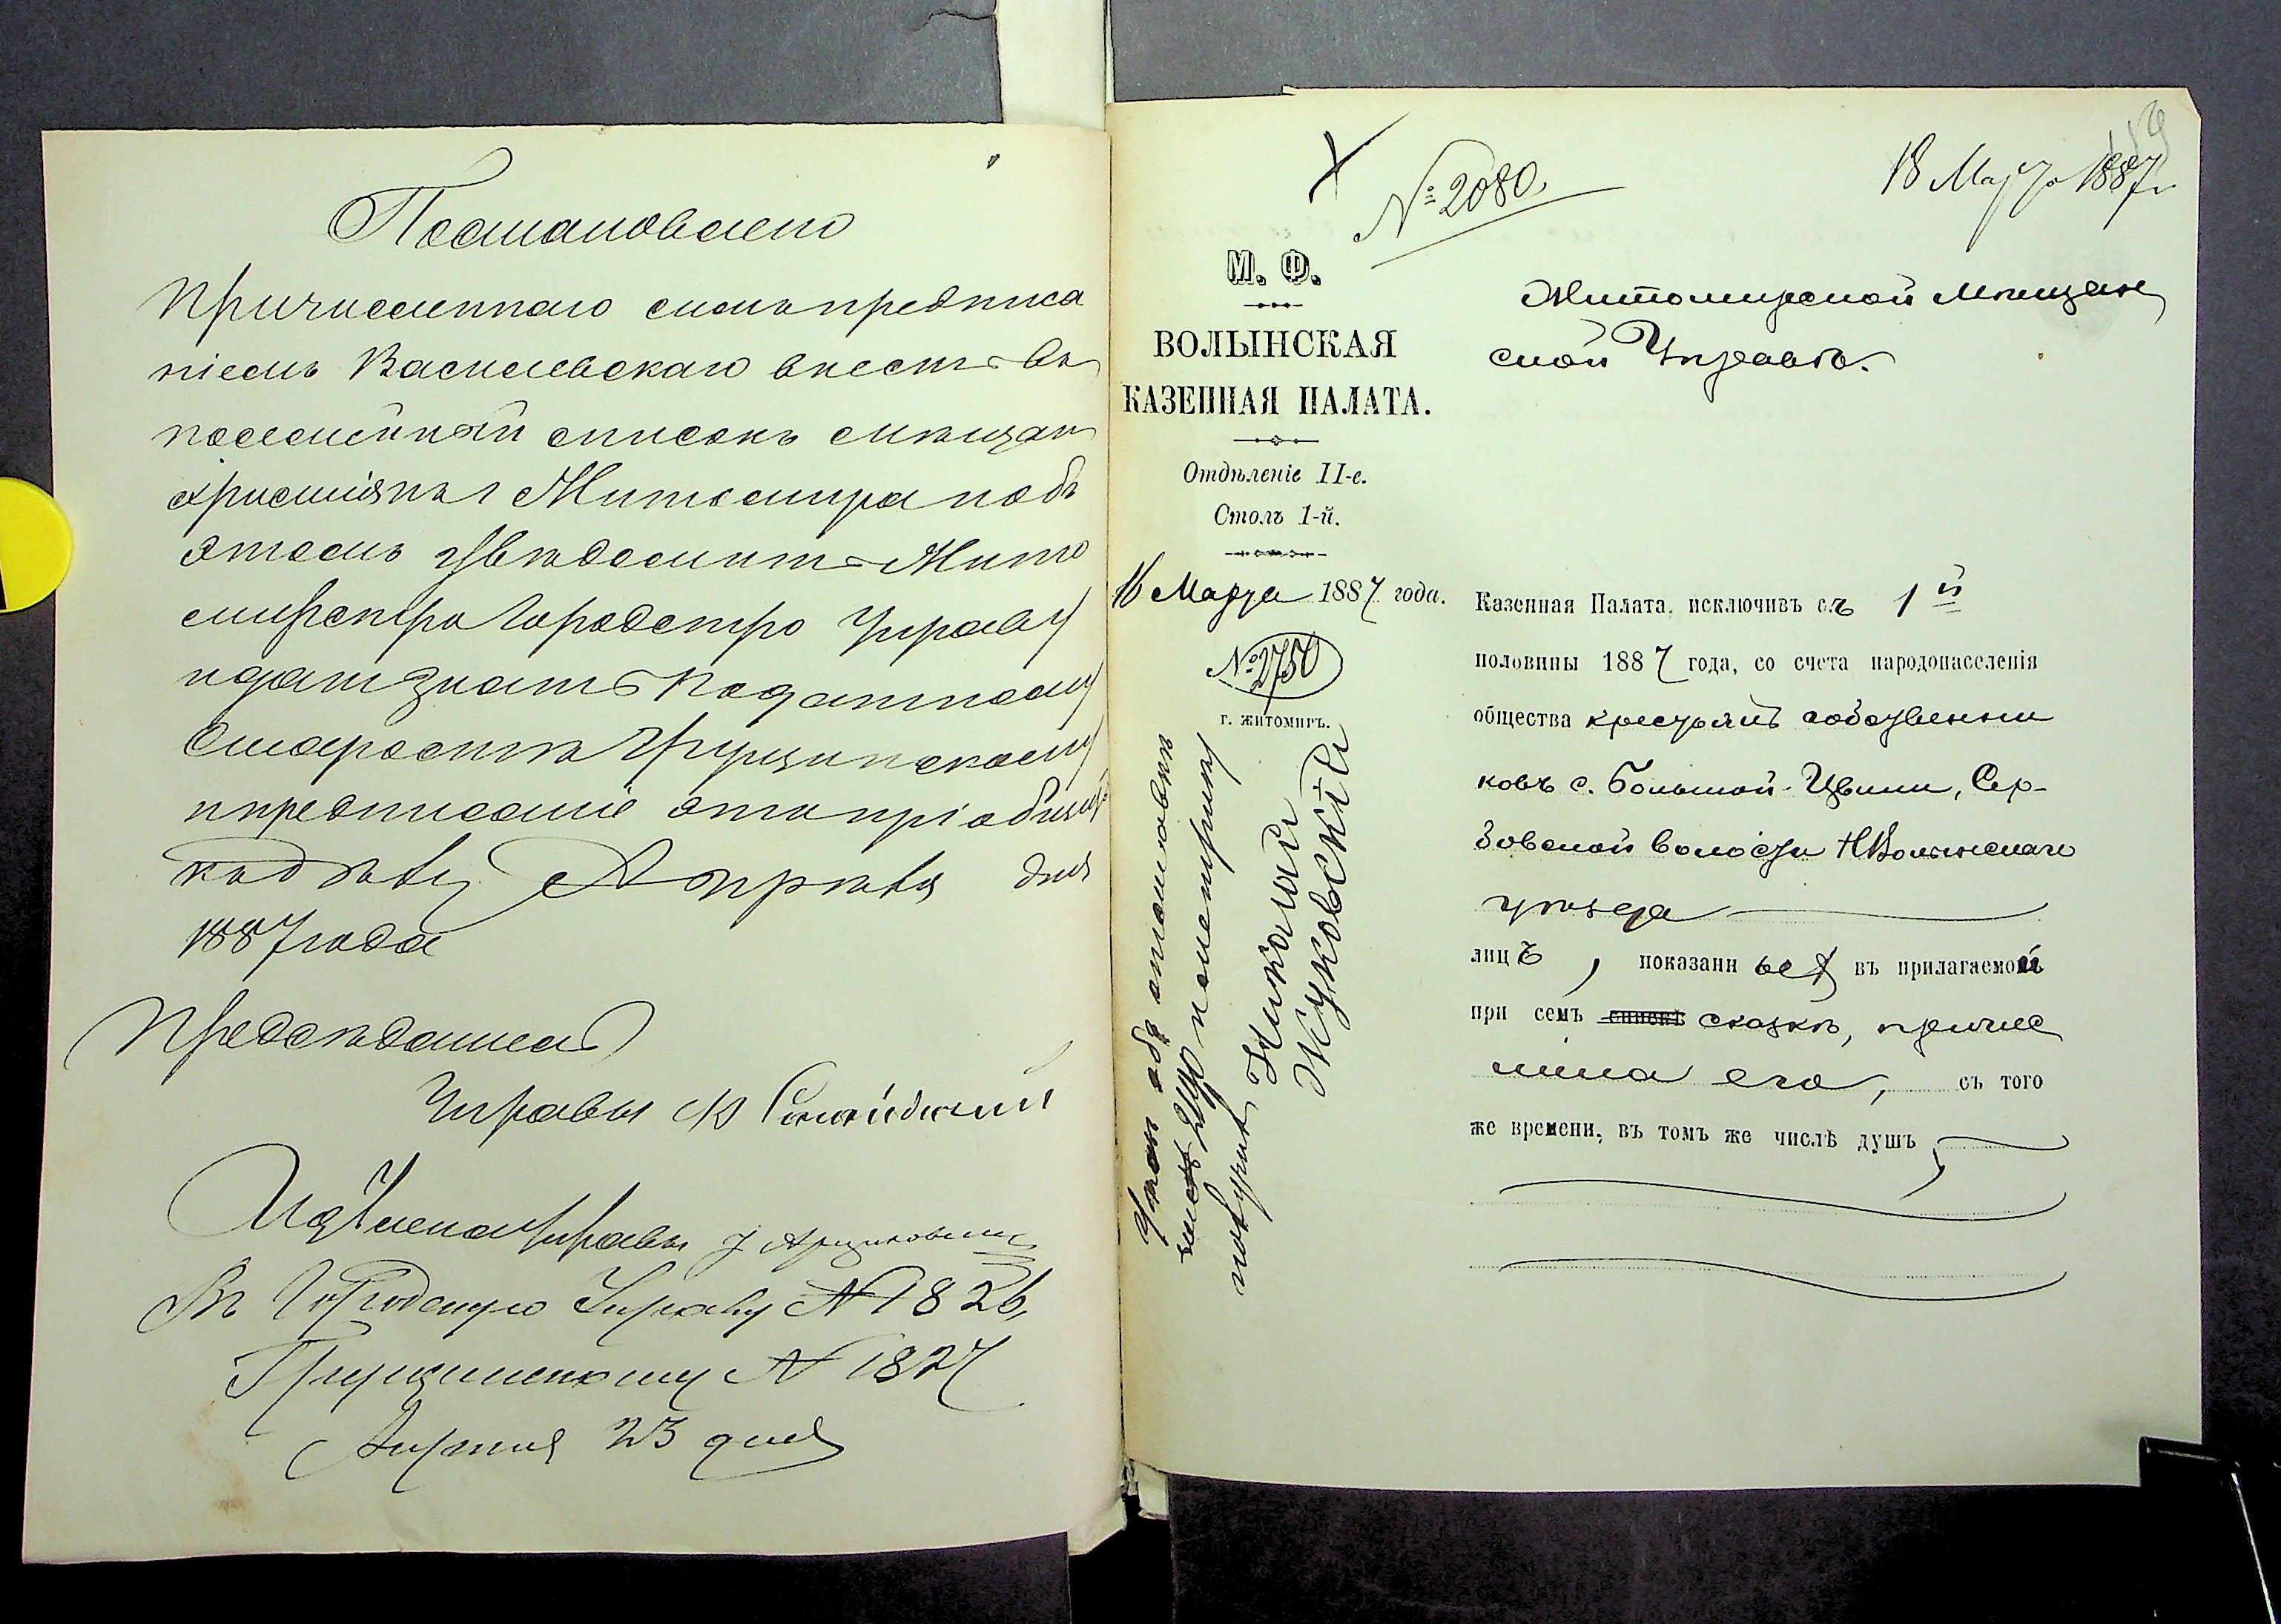 Постановлено
Причисленнаго симъ предписа
ніемъ Василевскаго внесть въ
посемейный списокъ мѣщан
христіянъ г Житомира и объ
этомъ увѣдомить Жито
мирскую Городскую Управу
и дать знать Податному
Старостѣ Грущинскому
и предписаніе это пріобщить
къ дѣлу Апрѣля дня
1887 года
Предсѣдатель
Управы
Чл҃ена Управы
Въ Городскую Управу № 1826,
Грущинскому № 1827
Апрѣля 23 дня
№ 2080.
18 Марта 1887 г.
М. Ф.
ВОЛЫНСКАЯ
КАЗЕННАЯ ПАЛАТА.
Отдѣленіе II-е.
Столъ 1-й.
16 Марта 1887 года.
№ 2750
г. Житомиръ.
Житомирской Мѣщан
ской Управѣ.
Казенная Палата, исключивъ съ 1 й
половины 1887 года, со счета народонаселенія
общества крестьянъ собственни
ковъ с. Большой-Цвили, Сер-
бовской волости НВолынскаго
уѣзда
лицъ, показанныхъ въ прилагаемой
при семъ спискѣ сказкѣ, причис
лила его, съ того
же времени, въ томъ же числѣ душъ,
Николай
Жуковскій